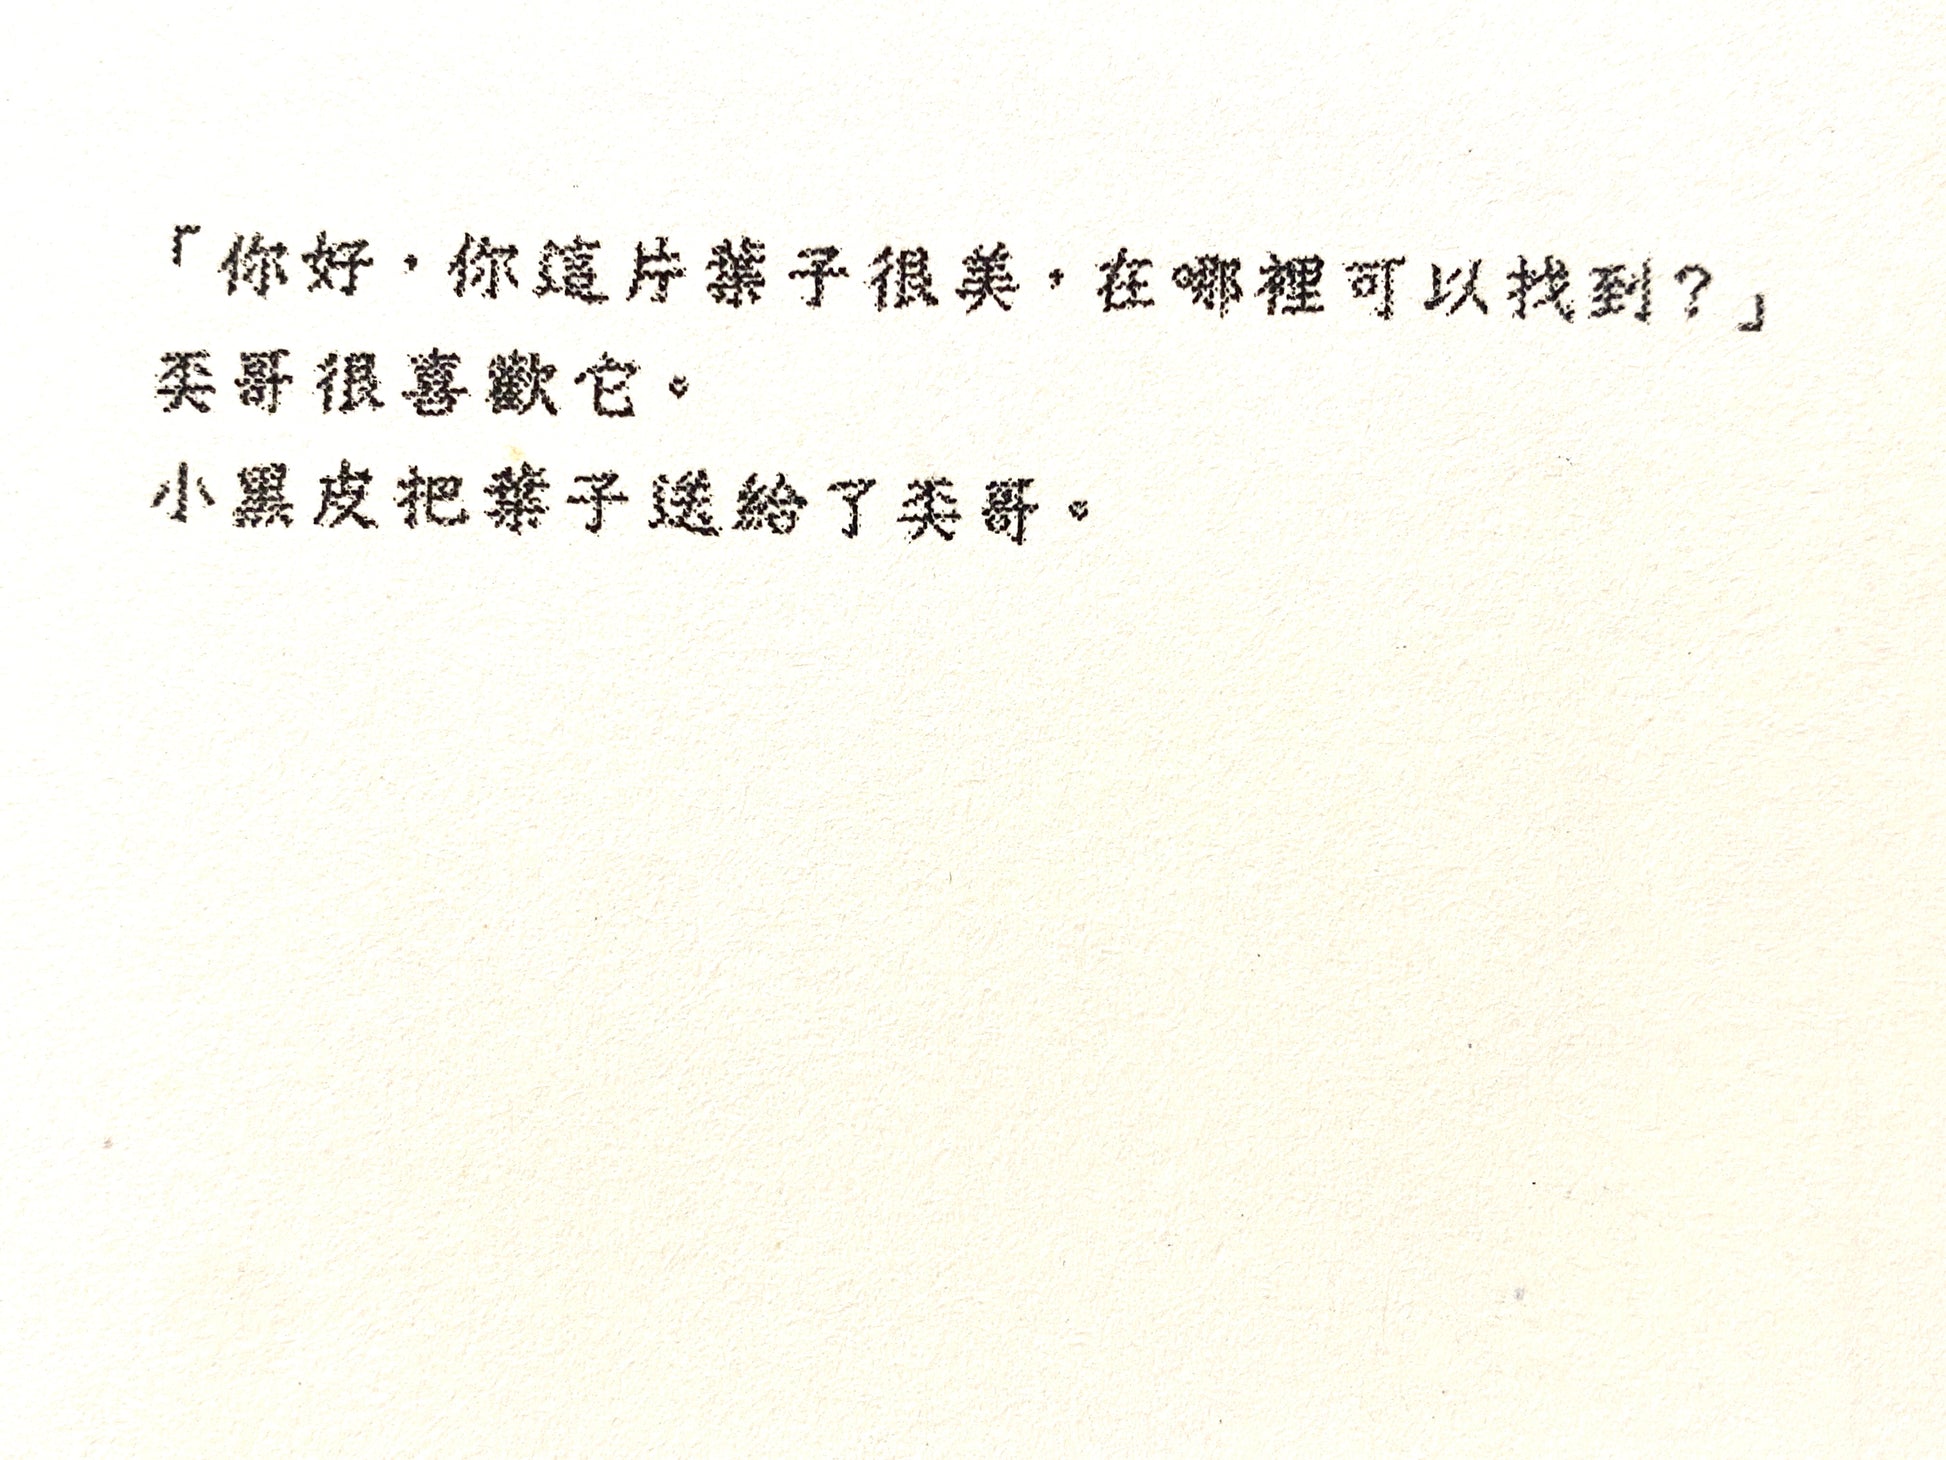 「你好，你這片葉子很美，在哪裡可以找到？」
奀哥很喜歡它。
小黑皮把葉子送給了奀哥。